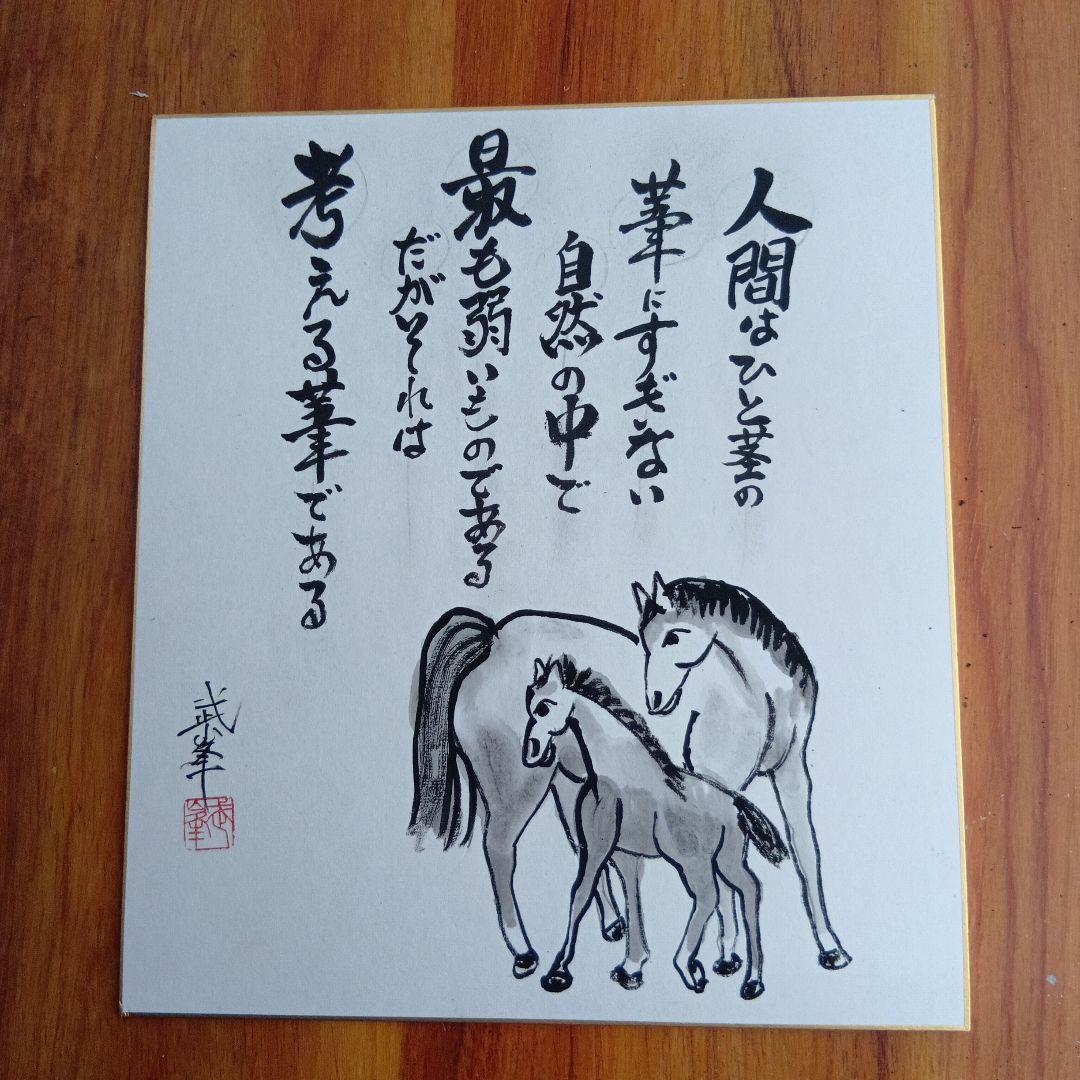 人間はひと茎の
葦にすぎない
自然の中で
最も弱いものである
だがそれは
考える葦である
武峯